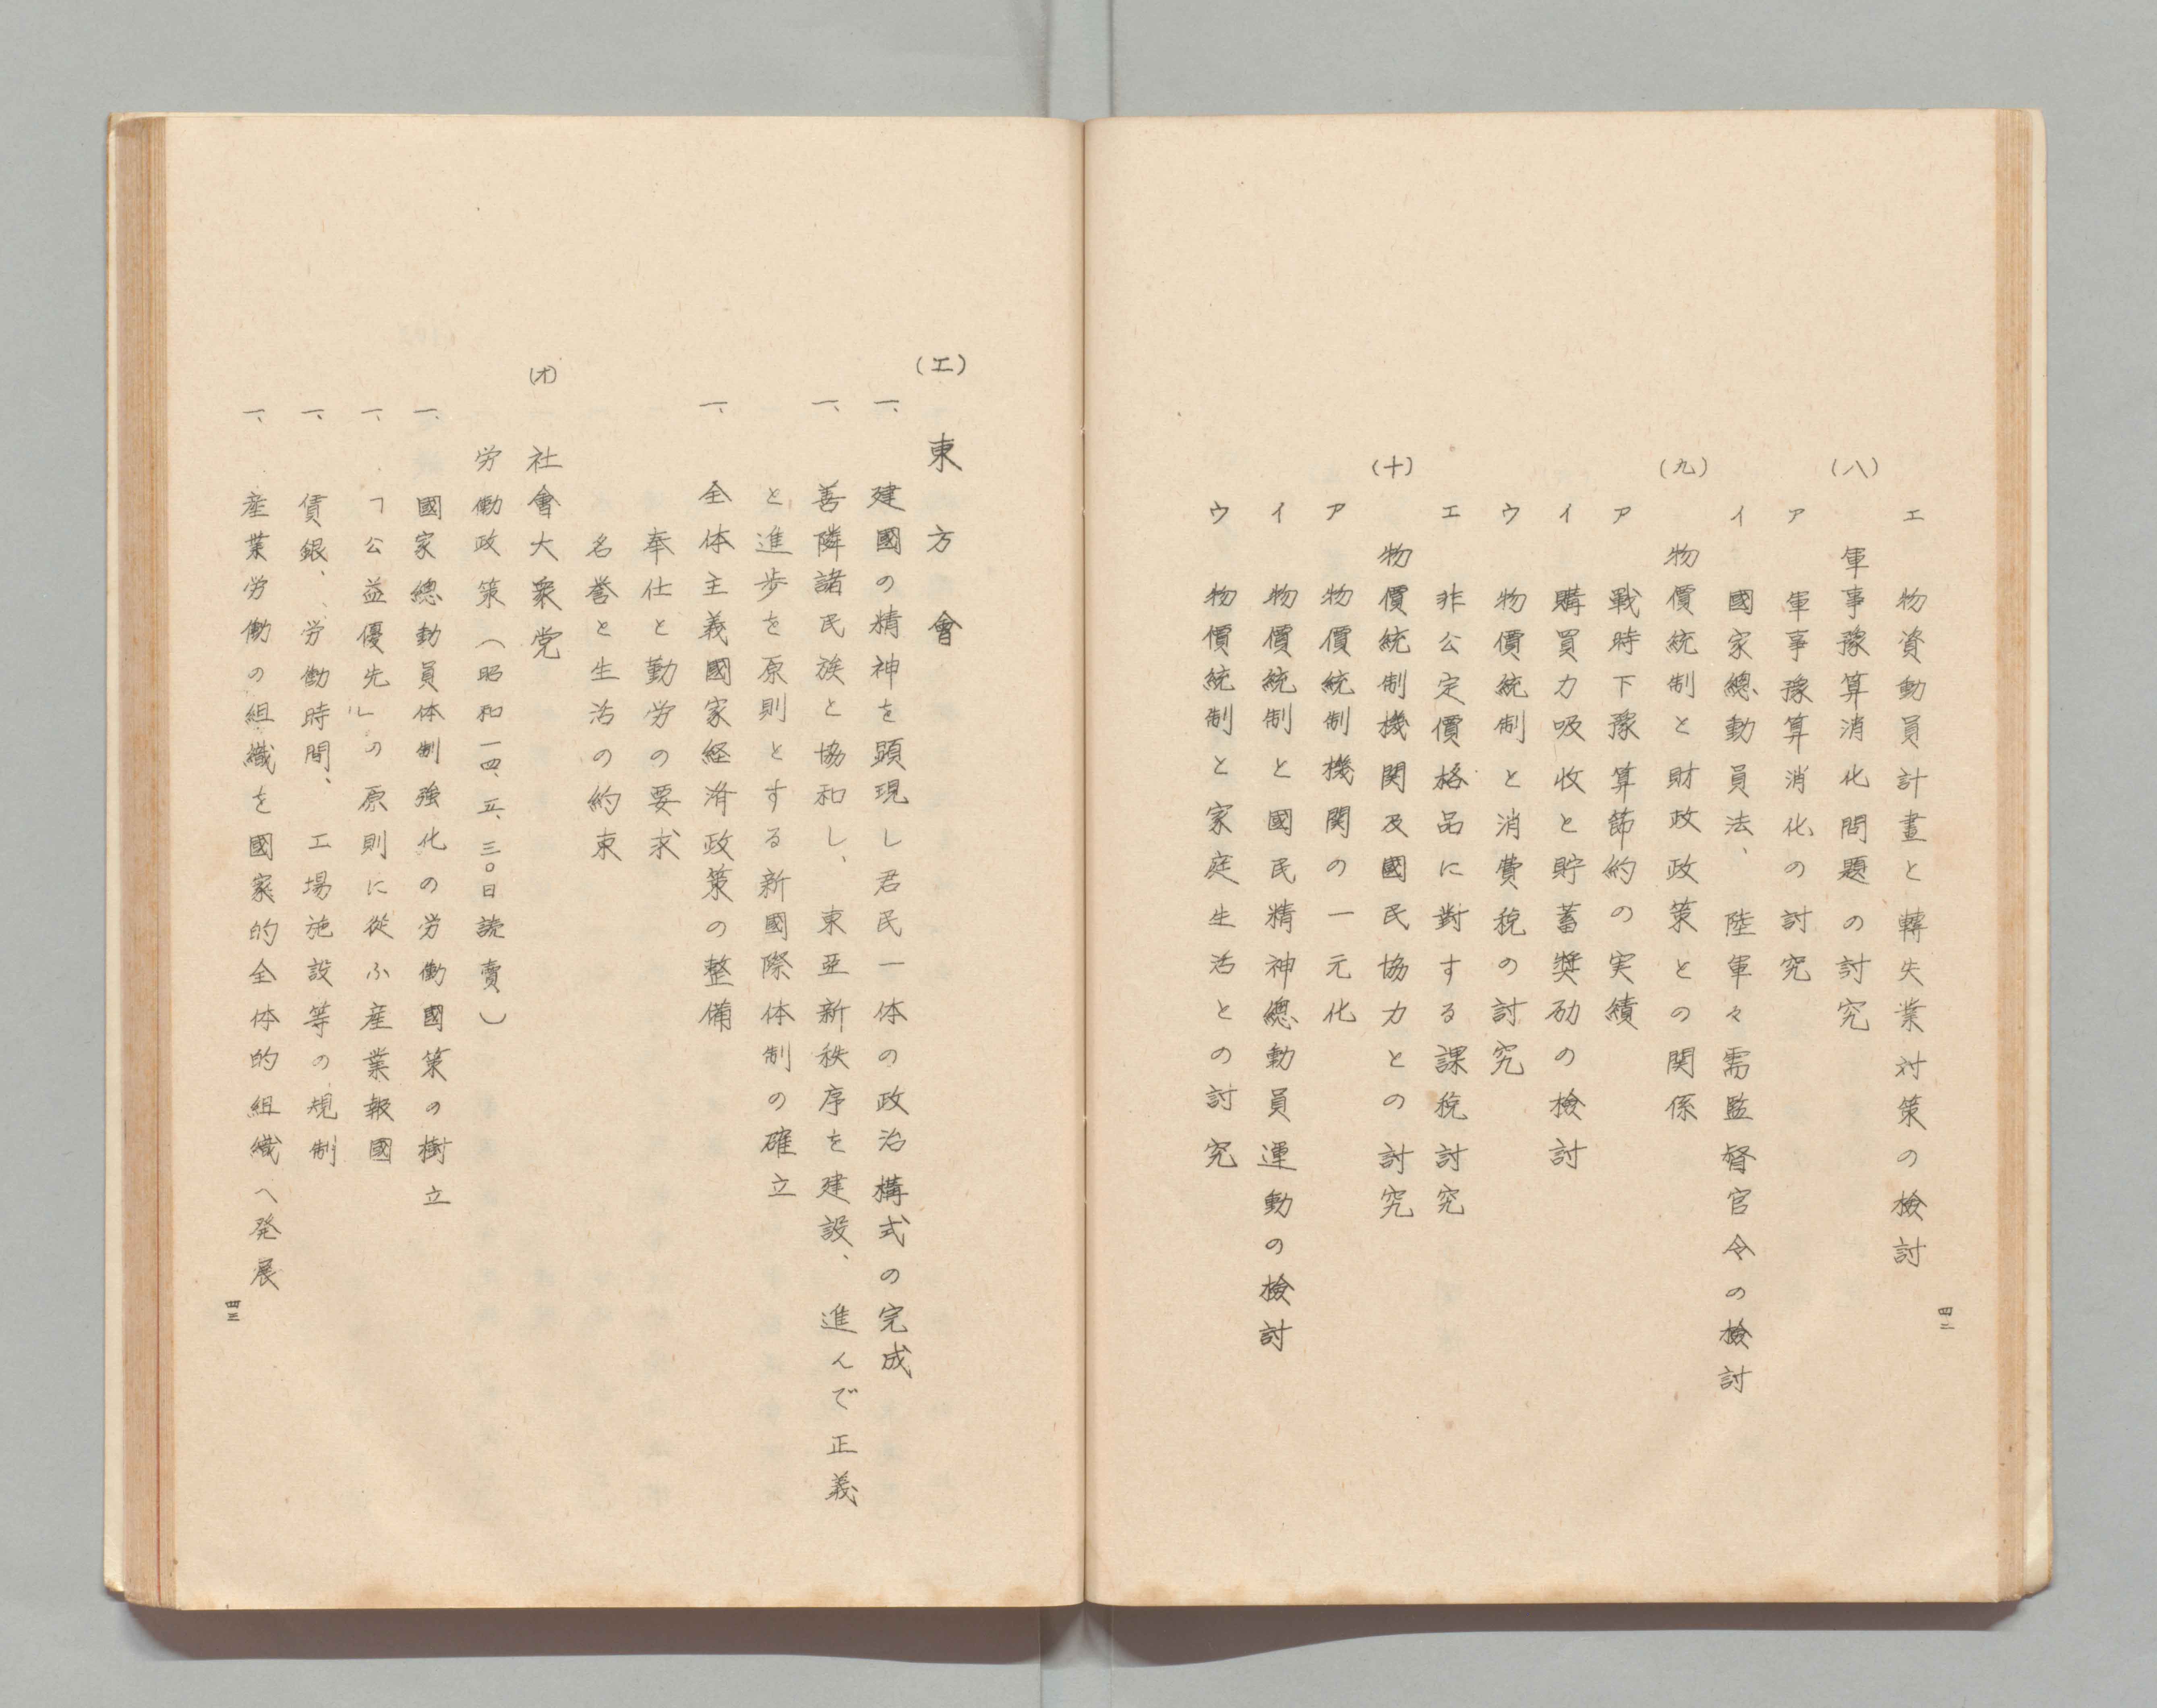 エ　物資動員計畫と轉失業対策の檢討
(八)　軍事豫算消化問題の討究
ア　軍事豫算消化の討究
イ　國家總動員法、陸軍々需監督官令の檢討
(九)　物價統制と財政政策との関係
ア　戰時下豫算節約の実績
イ　購買力吸收と貯蓄奬励の檢討
ウ　物價統制と消費税の討究
エ　非公定價格品に對する課税討究
(十)　物價統制機関及國民協力との討究
ア　物價統制機関の一元化
イ　物價統制と國民精神總動員運動の檢討
ウ　物價統制と家庭生活との討究
四二
(エ)　東方會
一、建國の精神を顕現し君民一体の政治構式の完成
一、善隣諸民族と協和し、東亜新秩序を建設、進んで正義
と進歩を原則とする新國際体制の確立
一、全体主義國家経済政策の整備
奉仕と勤労の要求
名誉と生活の約束
(オ)　社會大衆党
労働政策（昭和一四、五、三〇日読賣）
一、國家總動員体制強化の労働國策の樹立
一、「公益優先」の原則に從ふ産業報國
一、賃銀、労働時間、工場施設等の規制
一、産業労働の組織を國家的全体的組織へ発展
四三